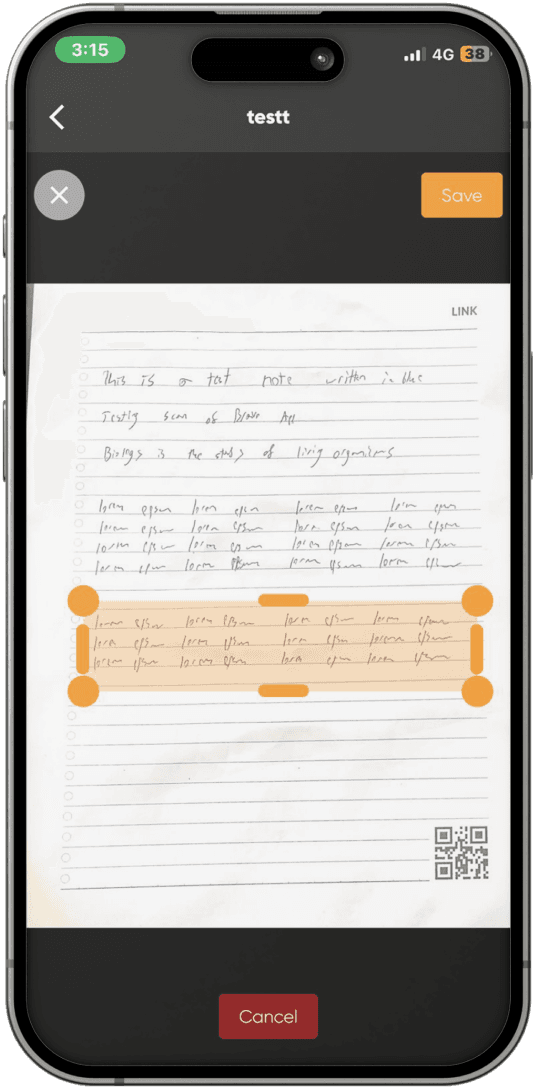 3:15
4G 38
testt
Save
LINK
This is a test note written in blue
Testing scan of Brave App
Biology is the study of living organisms
lorem epsum lorem epsum lorem epsum lorem epsum
lorem epsum lorem epsum lorem epsum lorem epsum
lorem epsum lorem epsum lorem epsum lorem epsum
lorem epsum lorem epsum lorem epsum lorem epsum
lorem epsum lorem epsum lorem epsum lorem epsum
lorem epsum lorem epsum lorem epsum lorem epsum
lorem epsum lorem epsum lorem epsum lorem epsum
Cancel